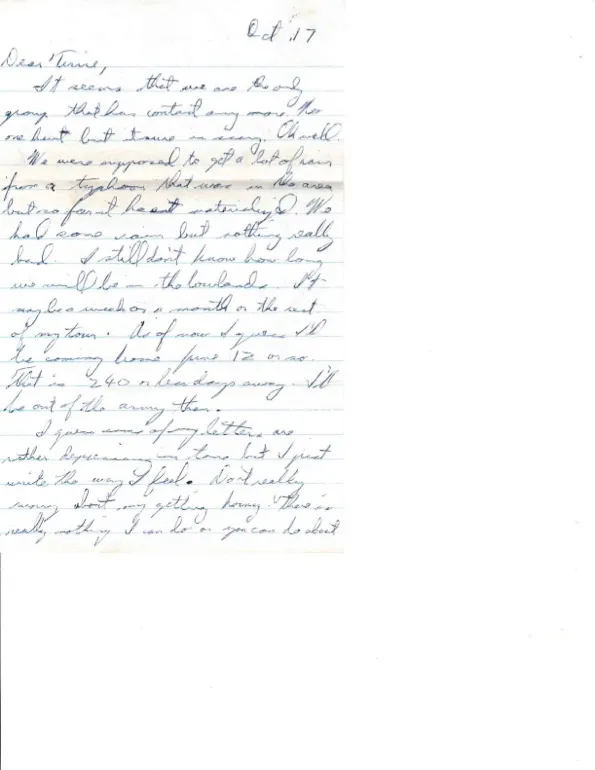 Oct 17
Dear Terrie,
It seems that we are the only
group that has contact any more. No
one hurt but it sure is scary. Oh well.
We were supposed to get a lot of rain
from a typhoon that was in the area
but so far it hasnt materialized. We
had some rain but nothing really
bad. I still don't know how long
we will be in the lowlands. It
may be a week or a month or the rest
of my tour. As of now I guess I'll
be coming home June 12 or so.
That is 240 or less days away. I'll
be out of the army then.
I guess some of my letters are
rather depressing in tone but I just
write the way I feel. Don't really
worry about my getting horny. There is
really nothing I can do or you can do about